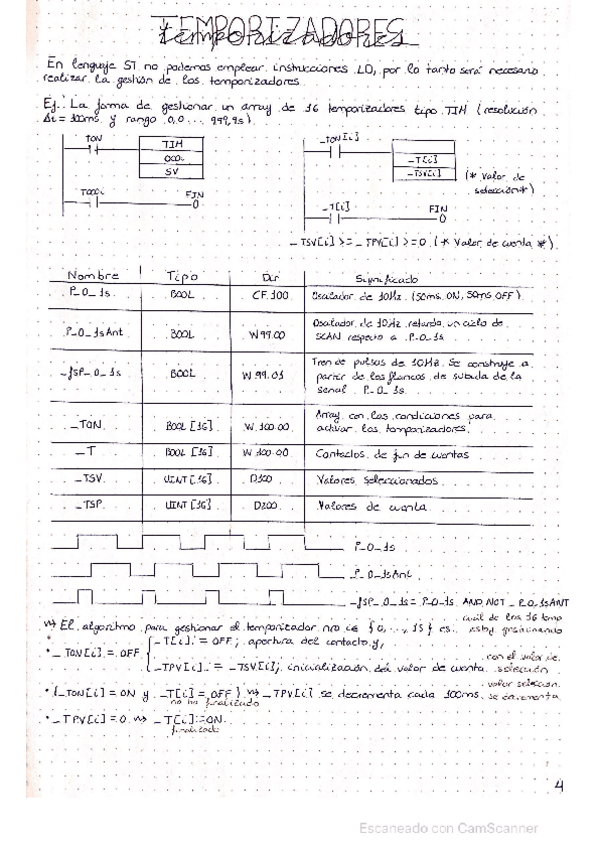 TEMPORIZADORES
En lenguaje ST no podemos emplear instrucciones LD, por lo tanto será necesario
realizar la gestión de los temporizadores
Ej: La forma de gestionar un array de 16 temporizadores tipo TIM (resolución
Δt = 100ms y rango 0,0... 999,9s).
TON
TIM
SV
FIN
_TON[i]
_T[i]
_TSV[i]
(* Valor de
selección *)
_T[i]
FIN
_TSV[i] >= _TPV[i] >= 0 (* Valor de cuenta *)
Nombre Tipo Dir Significado
P_0_1s BOOL CF.100 Oscilador de 10Hz (50ms ON, 50ms OFF)
P_0_1sAnt BOOL W99.00 Oscilador de 10Hz retarda un ciclo de
SCAN respecto a P_0_1s
_fSP_0_1s BOOL W 99.01 Tren de pulsos de 10Hz. Se construye a
partir de los flancos de subida de la
señal P_0_1s.
_TON BOOL [16] W 100.00 Array con las condiciones para
activar los temporizadores.
_T BOOL [16] Contactos de fin de cuentas
_TSV UINT [16] D100 Valores seleccionados
_TSP UINT [16] D200 Valores de cuenta
P_0_1s
P_0_1sAnt
_fSP_0_1s = P_0_1s AND NOT _P_0_1sANT
cual de los 16 temp
El algoritmo para gestionar el temporizador nro i ∈ {0,...,15} es: estoy gestionando
_TON[i] = OFF
_T[i] := OFF; apertura del contacto y,
_TPV[i] := _TSV[i]; inicialización del valor de cuenta con el valor de
selección
valor selección
(_TON[i] = ON y _T[i] = OFF) _TPV[i] se decrementa cada 100ms se incrementa
no ha finalizado
_TPV[i] = 0 _T[i] := ON.
finalizado
4
Escaneado con CamScanner